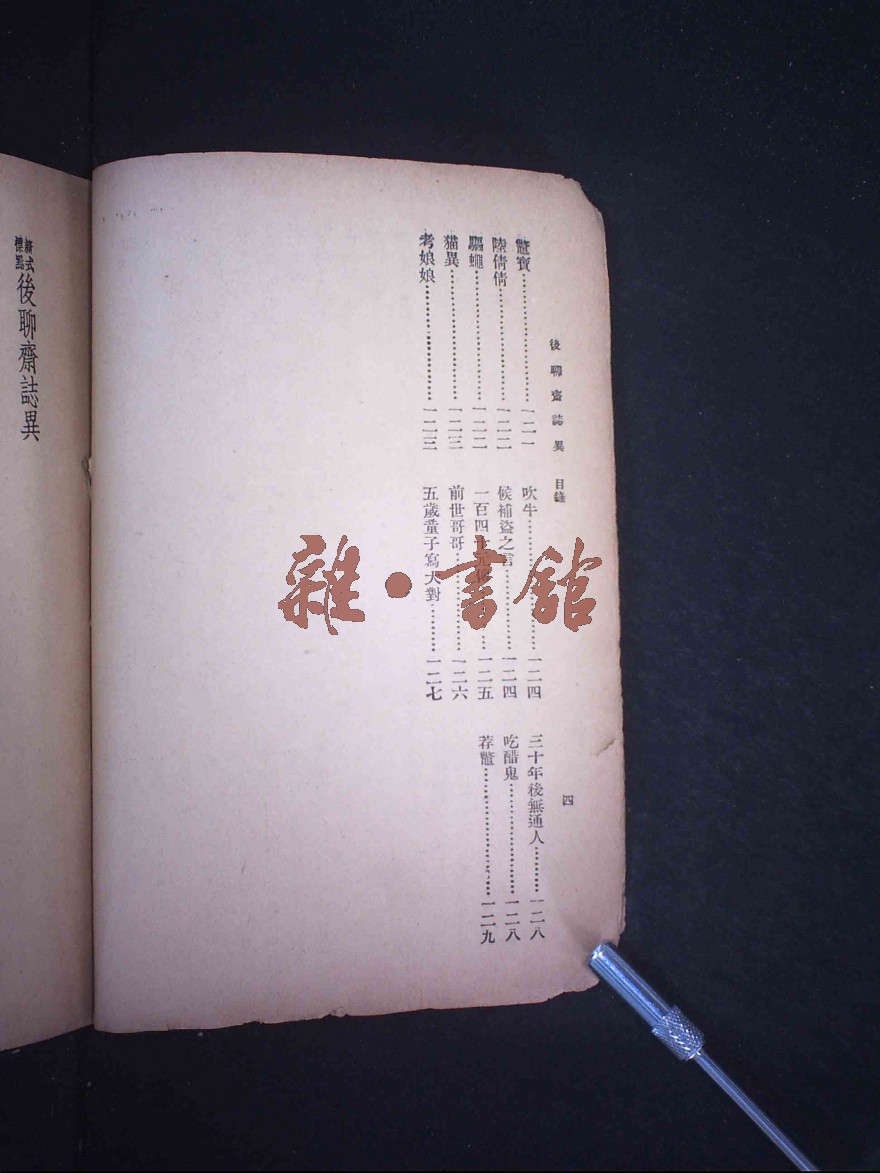 後聊齋誌異 目錄
四
鼈寶……一二一
陸倩倩……一二二
驅蠅……一二二
貓異……一二三
考娘娘……一二三
吹牛……一二四
候補盜之言……一二四
一百四十元……一二五
前世哥哥……一二六
五歲童子寫大對……一二七
三十年後無通人……一二八
吃醋鬼……一二八
荐鼈……一二九
新式標點
後聊齋誌異
雜·書館